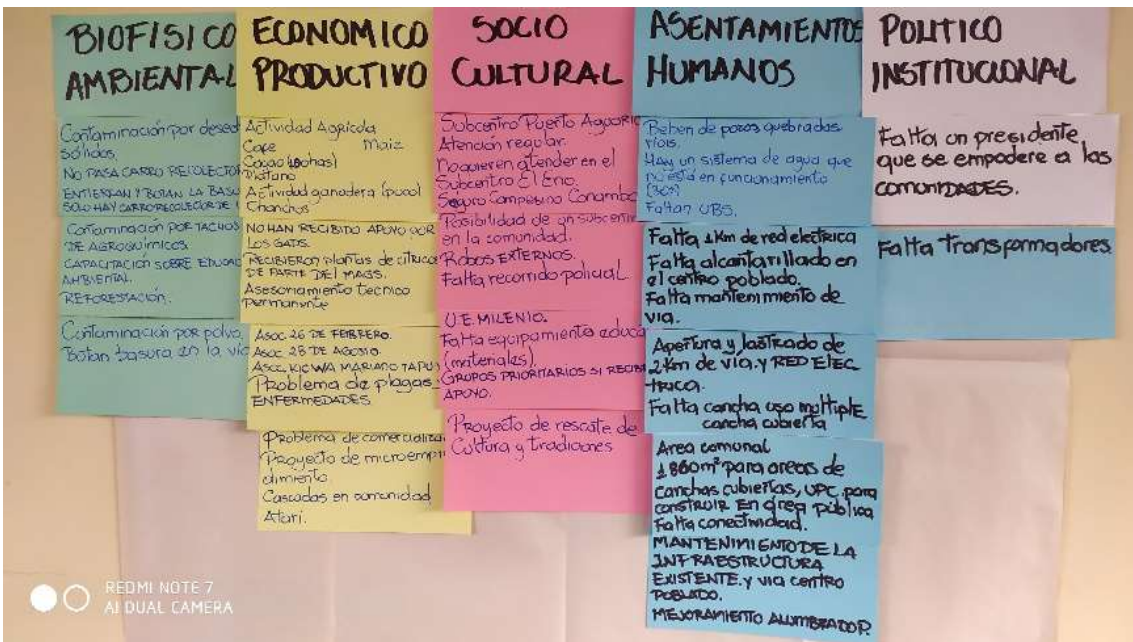 BIOFISICO
AMBIENTAL
Contaminación por desec
sólidos.
NO PASA CARRO RECOLECTOR
ENTIERRAN Y BOTAN LA BASU
SOLO HAY CARRO RECOLECTOR DE
Contaminación POR TACHOS
DE AGROQUÍMICOS.
CAPACITACIÓN SOBRE EDUCAC
AMBIENTAL.
REFORESTACIÓN.
Contaminación por polvo.
Botan basura en la vía
ECONOMICO
PRODUCTIVO
Actividad Agrícola
Cafe Maiz
Cacao
Platano
Actividad ganadera
Chanchos
NO HAN RECIBIDO APOYO POR
LOS GADS.
RECIBIERON plantas de citrica
DE PARTE DEL MAGS.
Asesoramiento tecnico
permanente
ASOC. 26 DE FEBRERO.
ASOC. 28 DE AGOSTO.
ASOC. KICWA MARIANO TAPUY
Problema de plagas
ENFERMEDADES
Problema de comercializa
Proyecto de microempr
dimiento.
Cascadas en comunidad
Atari.
SOCIO
CULTURAL
Subcentro Puerto Aguaric
Atención regular.
No quieren atender en el
Subcentro El Eno.
Seguro Campesino Conambo
Posibilidad de un subcentr
en la comunidad.
Robos EXTERNOS.
Falta recorrido policial.
U.E. MILENIO.
Falta equipamiento educa
(materiales)
GRUPOS PRIORITARIOS SI RECIBE
APOYO.
Proyecto de rescate de
Cultura y tradiciones
ASENTAMIENTOS
HUMANOS
Beben de pozos quebradas
ríos.
HAY un sistema de agua que
no está en funcionamiento
Faltan UBS.
Falta 1Km de red electrica
Falta alcantarillado en
el centro poblado.
Falta mantenimiento de
via.
Apertura y lastrado de
2Km de vía. y RED ELEC
TRICA.
Falta cancha uso multiple
cancha cubierta
Area comunal
1860m² para areas de
canchas cubiertas, UPC, para
construir En área pública
Falta conectividad.
MANTENIMIENTO DE LA
INFRAESTRUCTURA
EXISTENTE. y via centro
POBLADO.
MEJORAMIENTO ALUMBRADO P.
POLITICO
INSTITUCIONAL
Falta un presidente,
que se empodere a las
comunidades.
Falta Transformadores
REDMI NOTE 7
AI DUAL CAMERA